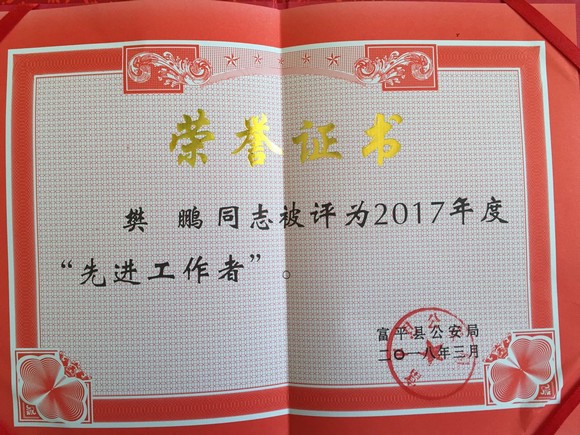 荣誉证书
樊 鹏同志被评为2017年度
“先进工作者”。
富平县公安局
二〇一八年三月